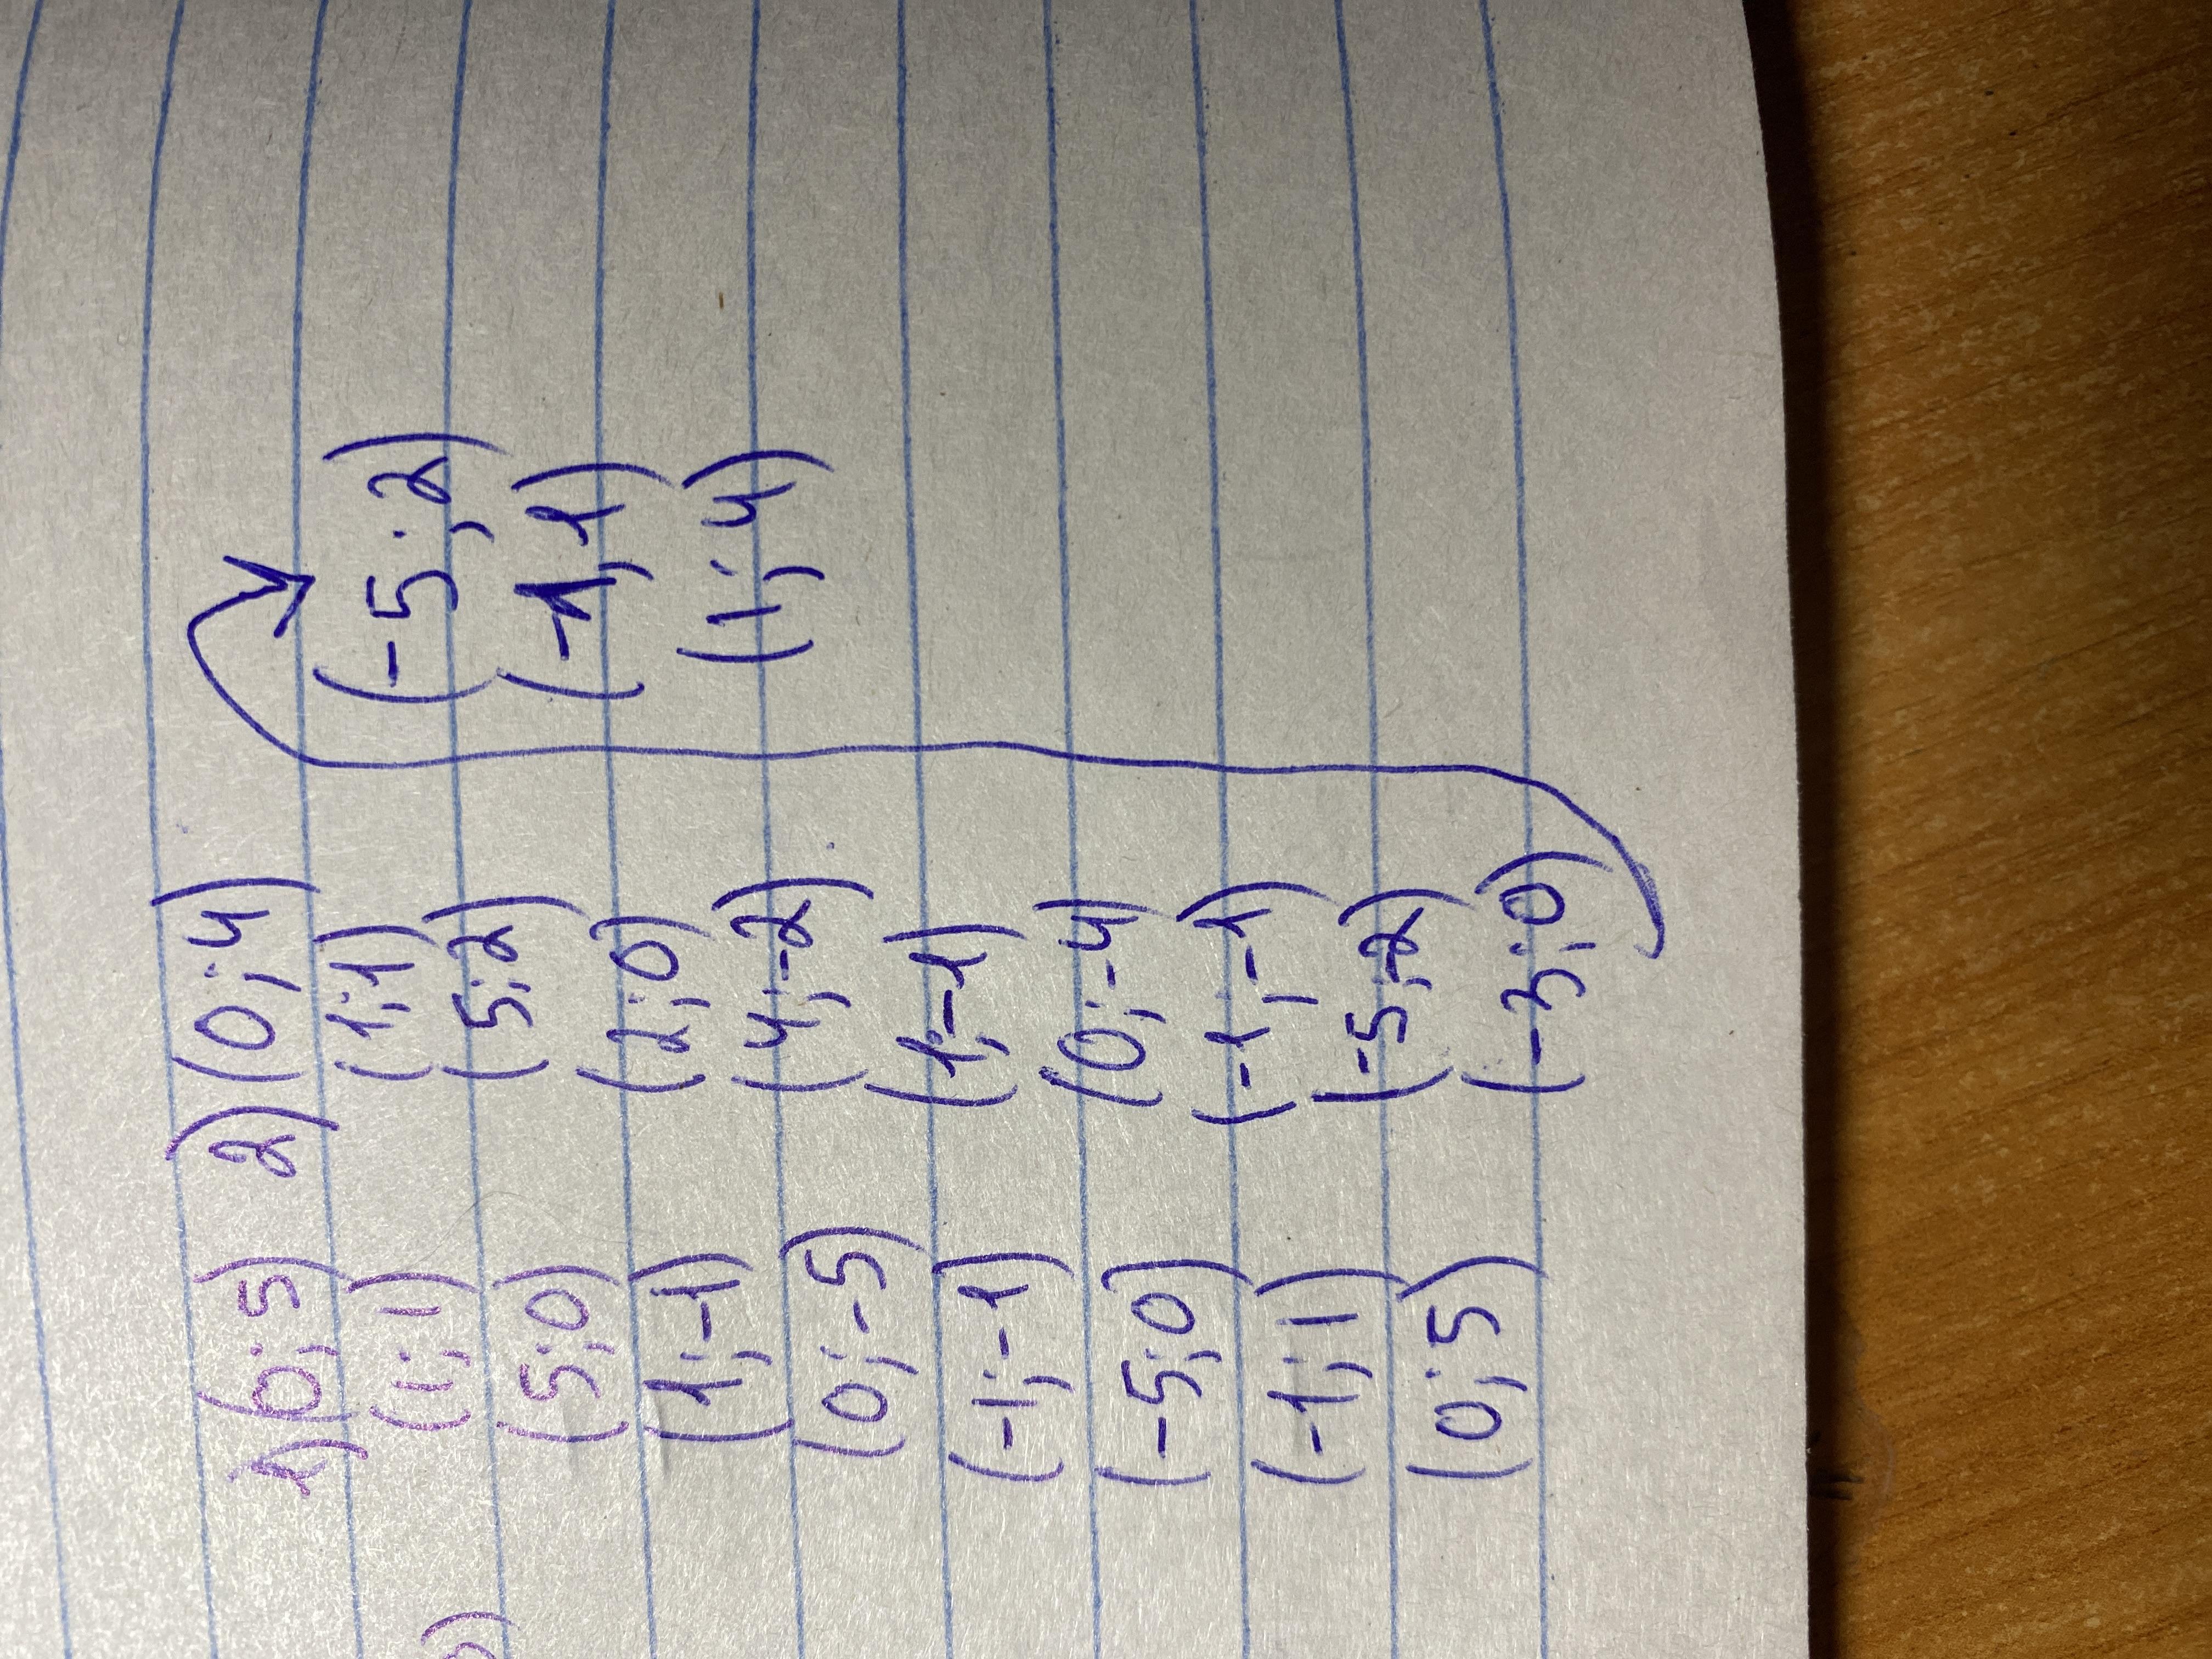 1)(0;5)
(1;1)
(5;0)
(1;-1)
(0;-5)
(-1;-1)
(-5;0)
(-1;1)
(0;5)
2)(0;4)
(1;1)
(5;2)
(2;0)
(4;-2)
(1;-1)
(0;-4)
(-1;-1)
(-5;-2)
(-3;0)
(-5;2)
(-1;1)
(1;4)